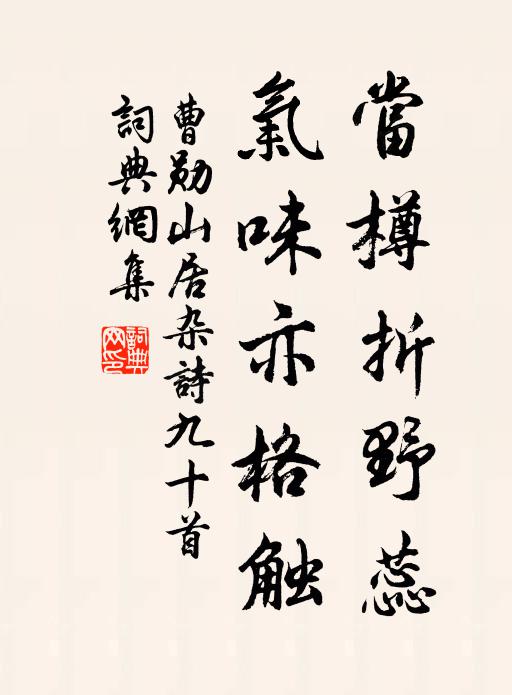 當樽折野蕊
氣味亦格触
曹勋山居杂詩九十首
詞典網集
詞典网印